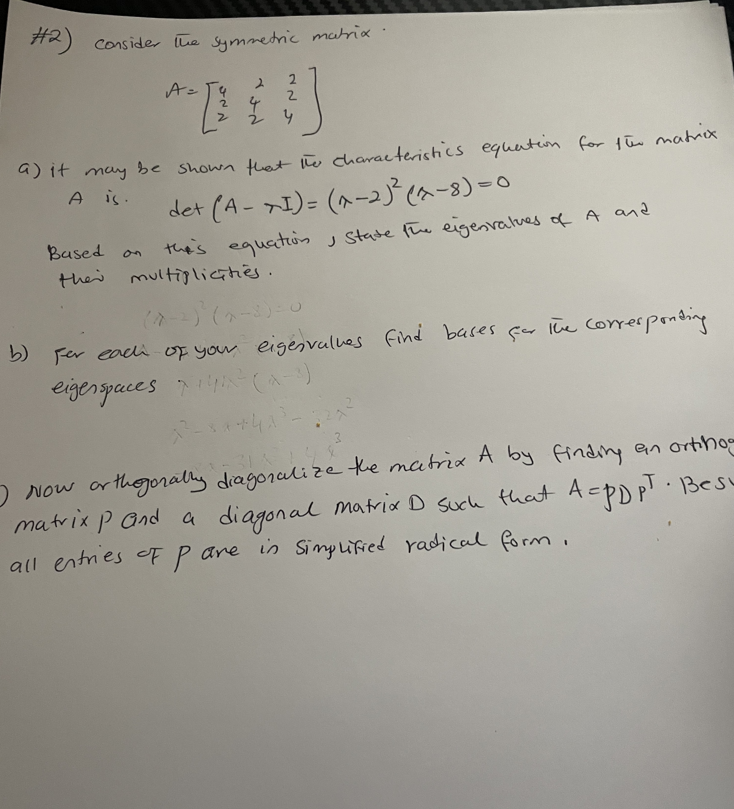 #2) Consider the symmetric matrix.
A = [4 2 2
2 4 2
2 2 4]
a) it may be shown that the characteristics equation for the matrix
A is. det (A - λI) = (λ-2)² (λ-8) = 0
Based on this equation, state the eigenvalues of A and
their multiplicities.
(λ-2)² (λ-8) = 0
b) For each of your eigenvalues find bases for the corresponding
eigenspaces
) Now orthogonally diagonalize the matrix A by finding an orthog
matrix P and a diagonal matrix D such that A = PDPᵀ. Be su
all entries of P are in simplified radical form.